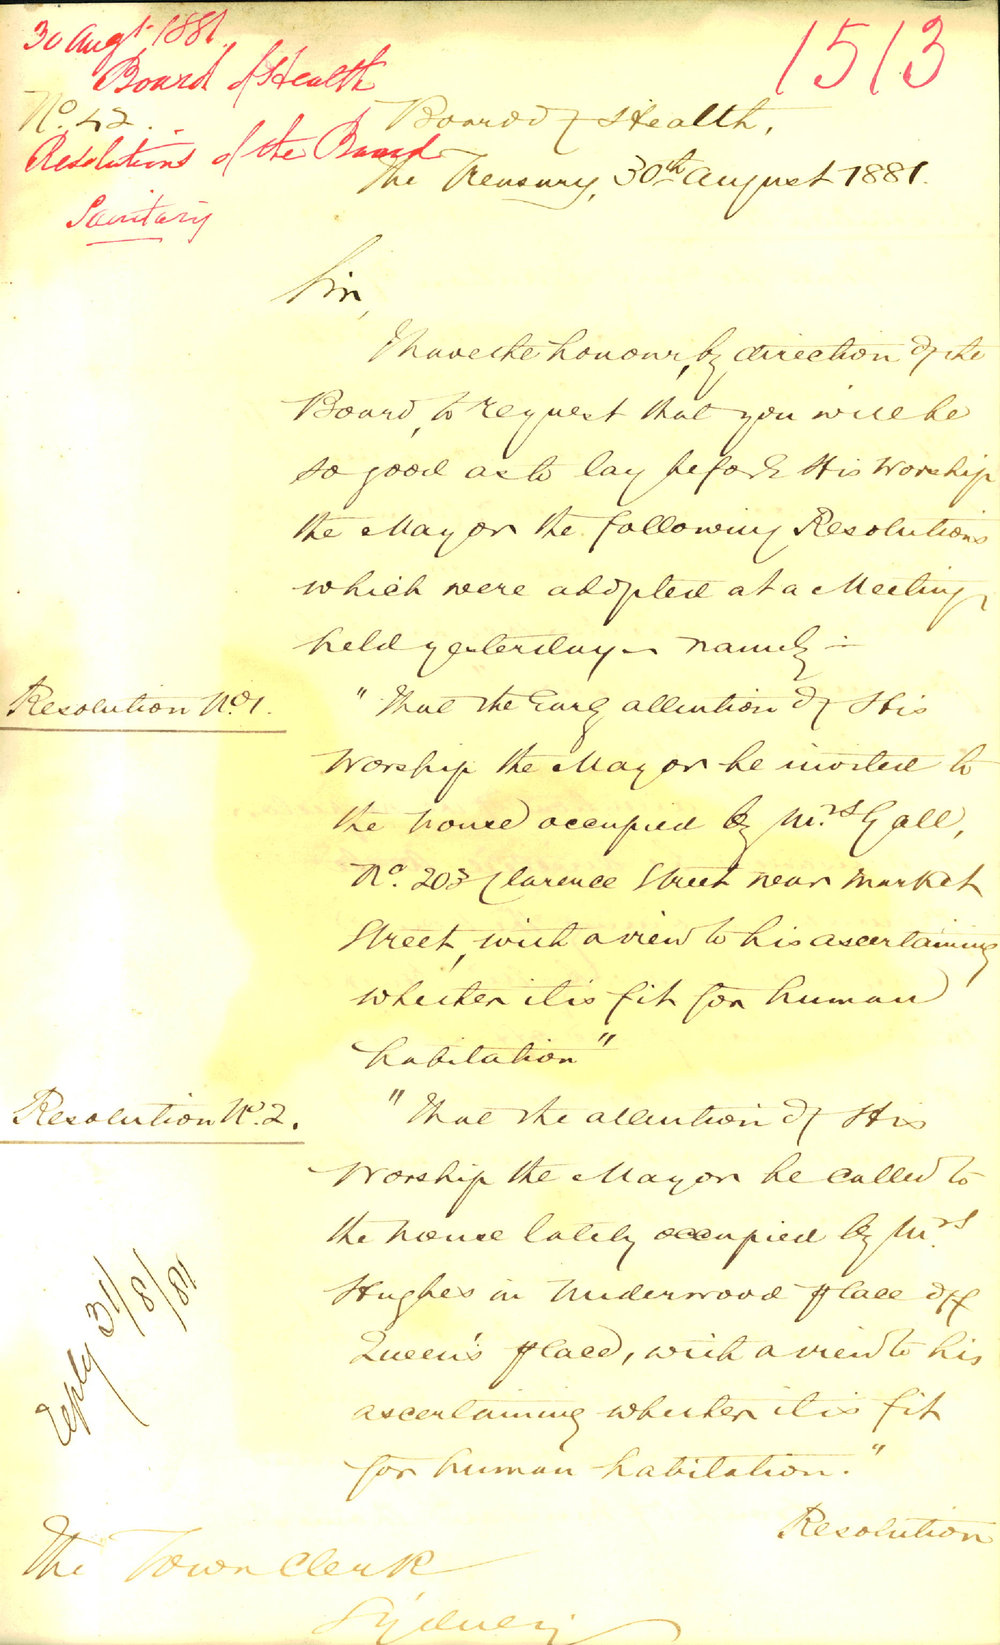 30 Augt 1881.
Board of Health
1513
No. 42.
Resolutions of the Board
Sanitary
Board of Health,
The Treasury, 30th August 1881.
Sir,
I have the honour, by direction of the
Board, to request that you will be
so good as to lay before His Worship
the Mayor the following Resolutions
which were adopted at a Meeting
held yesterday - namely :-
Resolution No. 1.
"That the Early attention of His
Worship the Mayor be invited to
the house occupied by Mrs Gall,
No. 203 Clarence Street near Market
Street, with a view to his ascertaining
whether it is fit for human
habitation"
Resolution No. 2.
"That the attention of His
Worship the Mayor be called to
the house lately occupied by Mrs
Hughes in Underwood place off
Queen's place, with a view to his
ascertaining whether it is fit
for human habitation."
Reply 31/8/81
Resolution
The Town Clerk
Sydney